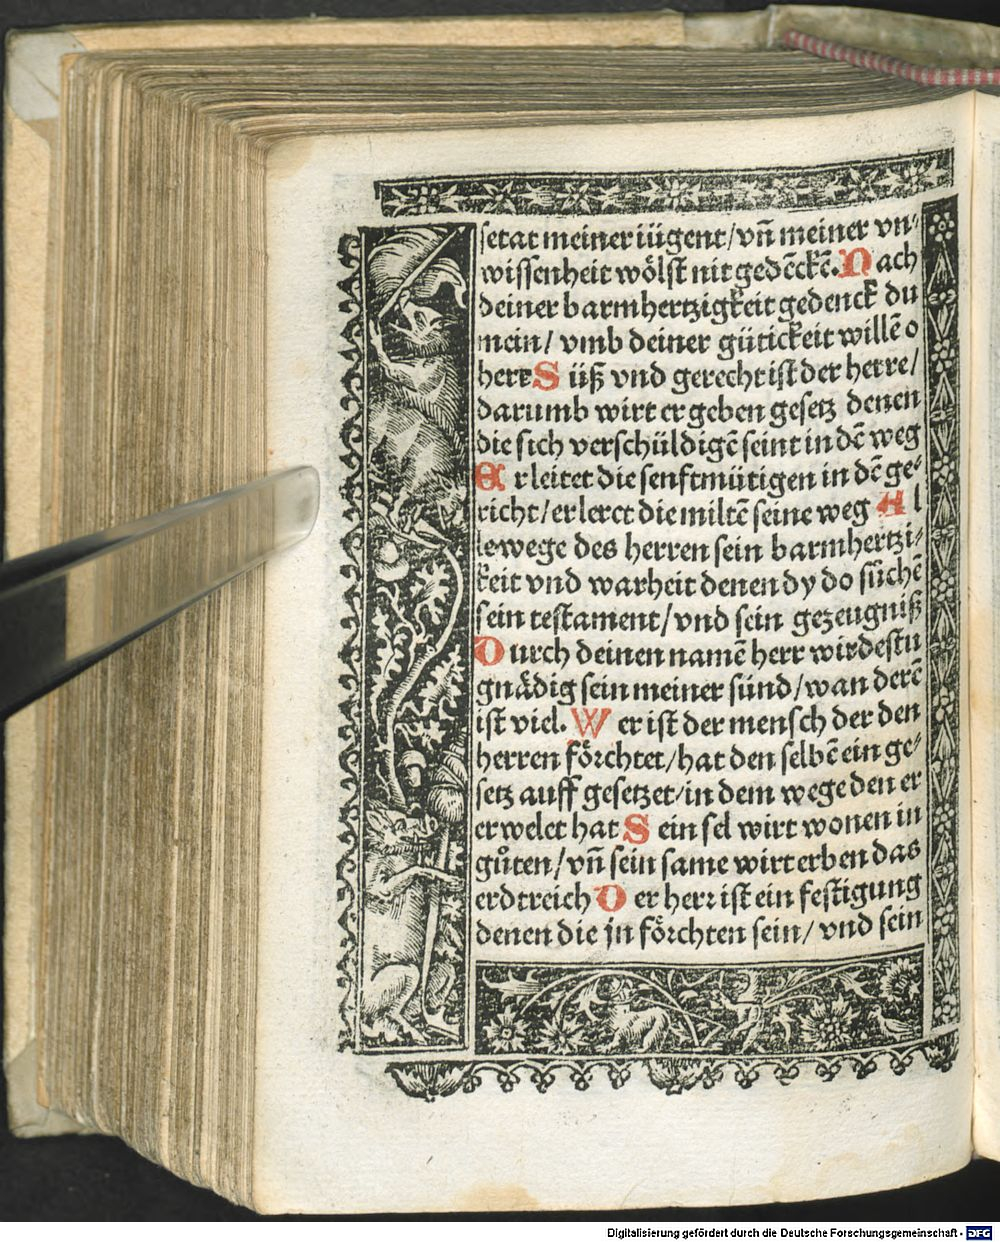 setat meiner iügent/vn̄ meiner vn⸗
wissenheit wölst nit gedēckē. Nach
deiner barmhertzigkeit gedenck du
mein/ vmb deiner gütickeit willē o
herr Süß vnd gerecht ist der herre/
darumb wirt er geben gesetz denen
die sich verschüldigē seint in dē weg
Er leitet die senftmütigen in dē ge⸗
richt/er leret die miltē seine weg Al
lewege des herren sein barmhertzi⸗
keit vnd warheit denen dy do sůchē
sein testament/vnd sein gezeugniß
Durch deinen namē herr wirdestu
gnädig sein meiner sünd/wan derē
ist viel. Wer ist der mensch der den
herren förchtet/hat den selbē ein ge⸗
setz auff gesetzet/in dem wege den er
erwelet hat Sein sel wirt wonen in
gůten/vn̄ sein same wirt erben das
erdtreich Der herr ist ein festigung
denen die jn förchten sein/vnd sein
Digitalisierung gefördert durch die Deutsche Forschungsgemeinschaft - DFG